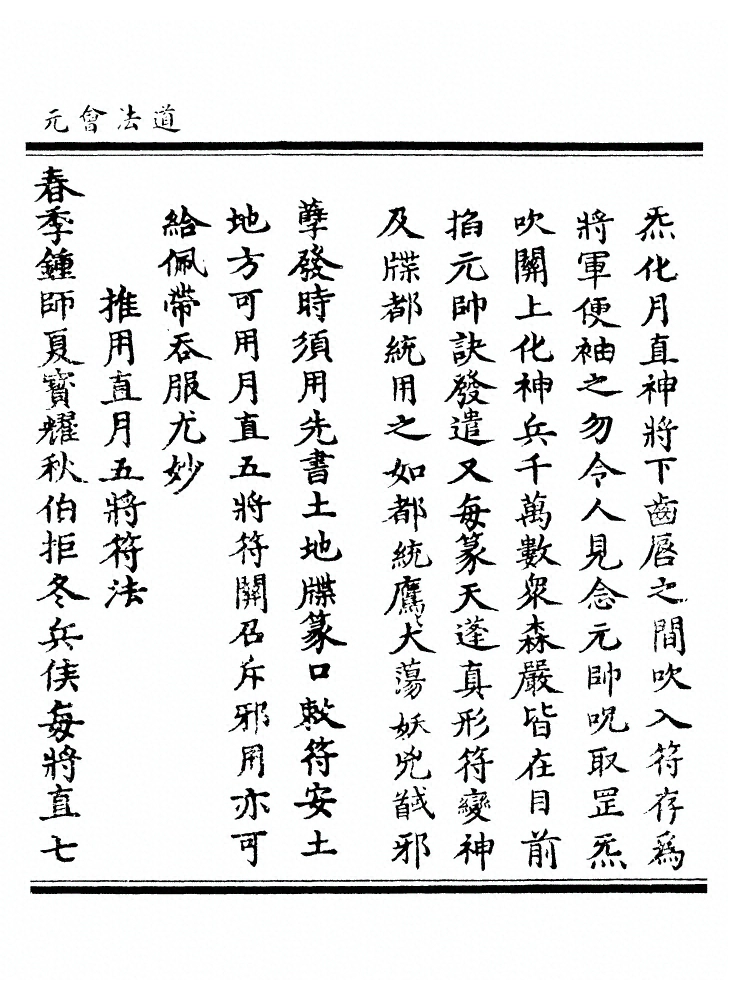 道法會元
炁化月直神將下齒唇之間吹入符存為
將軍便袖之勿令人見念元帥呪取罡炁
吹關上化神兵千萬數衆森嚴皆在目前
掐元帥訣發遣又每篆天蓬真形符變神
及牒都統用之如都統鷹犬蕩妖兇馘邪
孽發時須用先書土地牒篆口敕符安土
地方可用月直五將符關召斥邪用亦可
給佩帶吞服尤妙
推用直月五將符法
春季鍾師夏寶耀秋伯拒冬兵侯每將直七